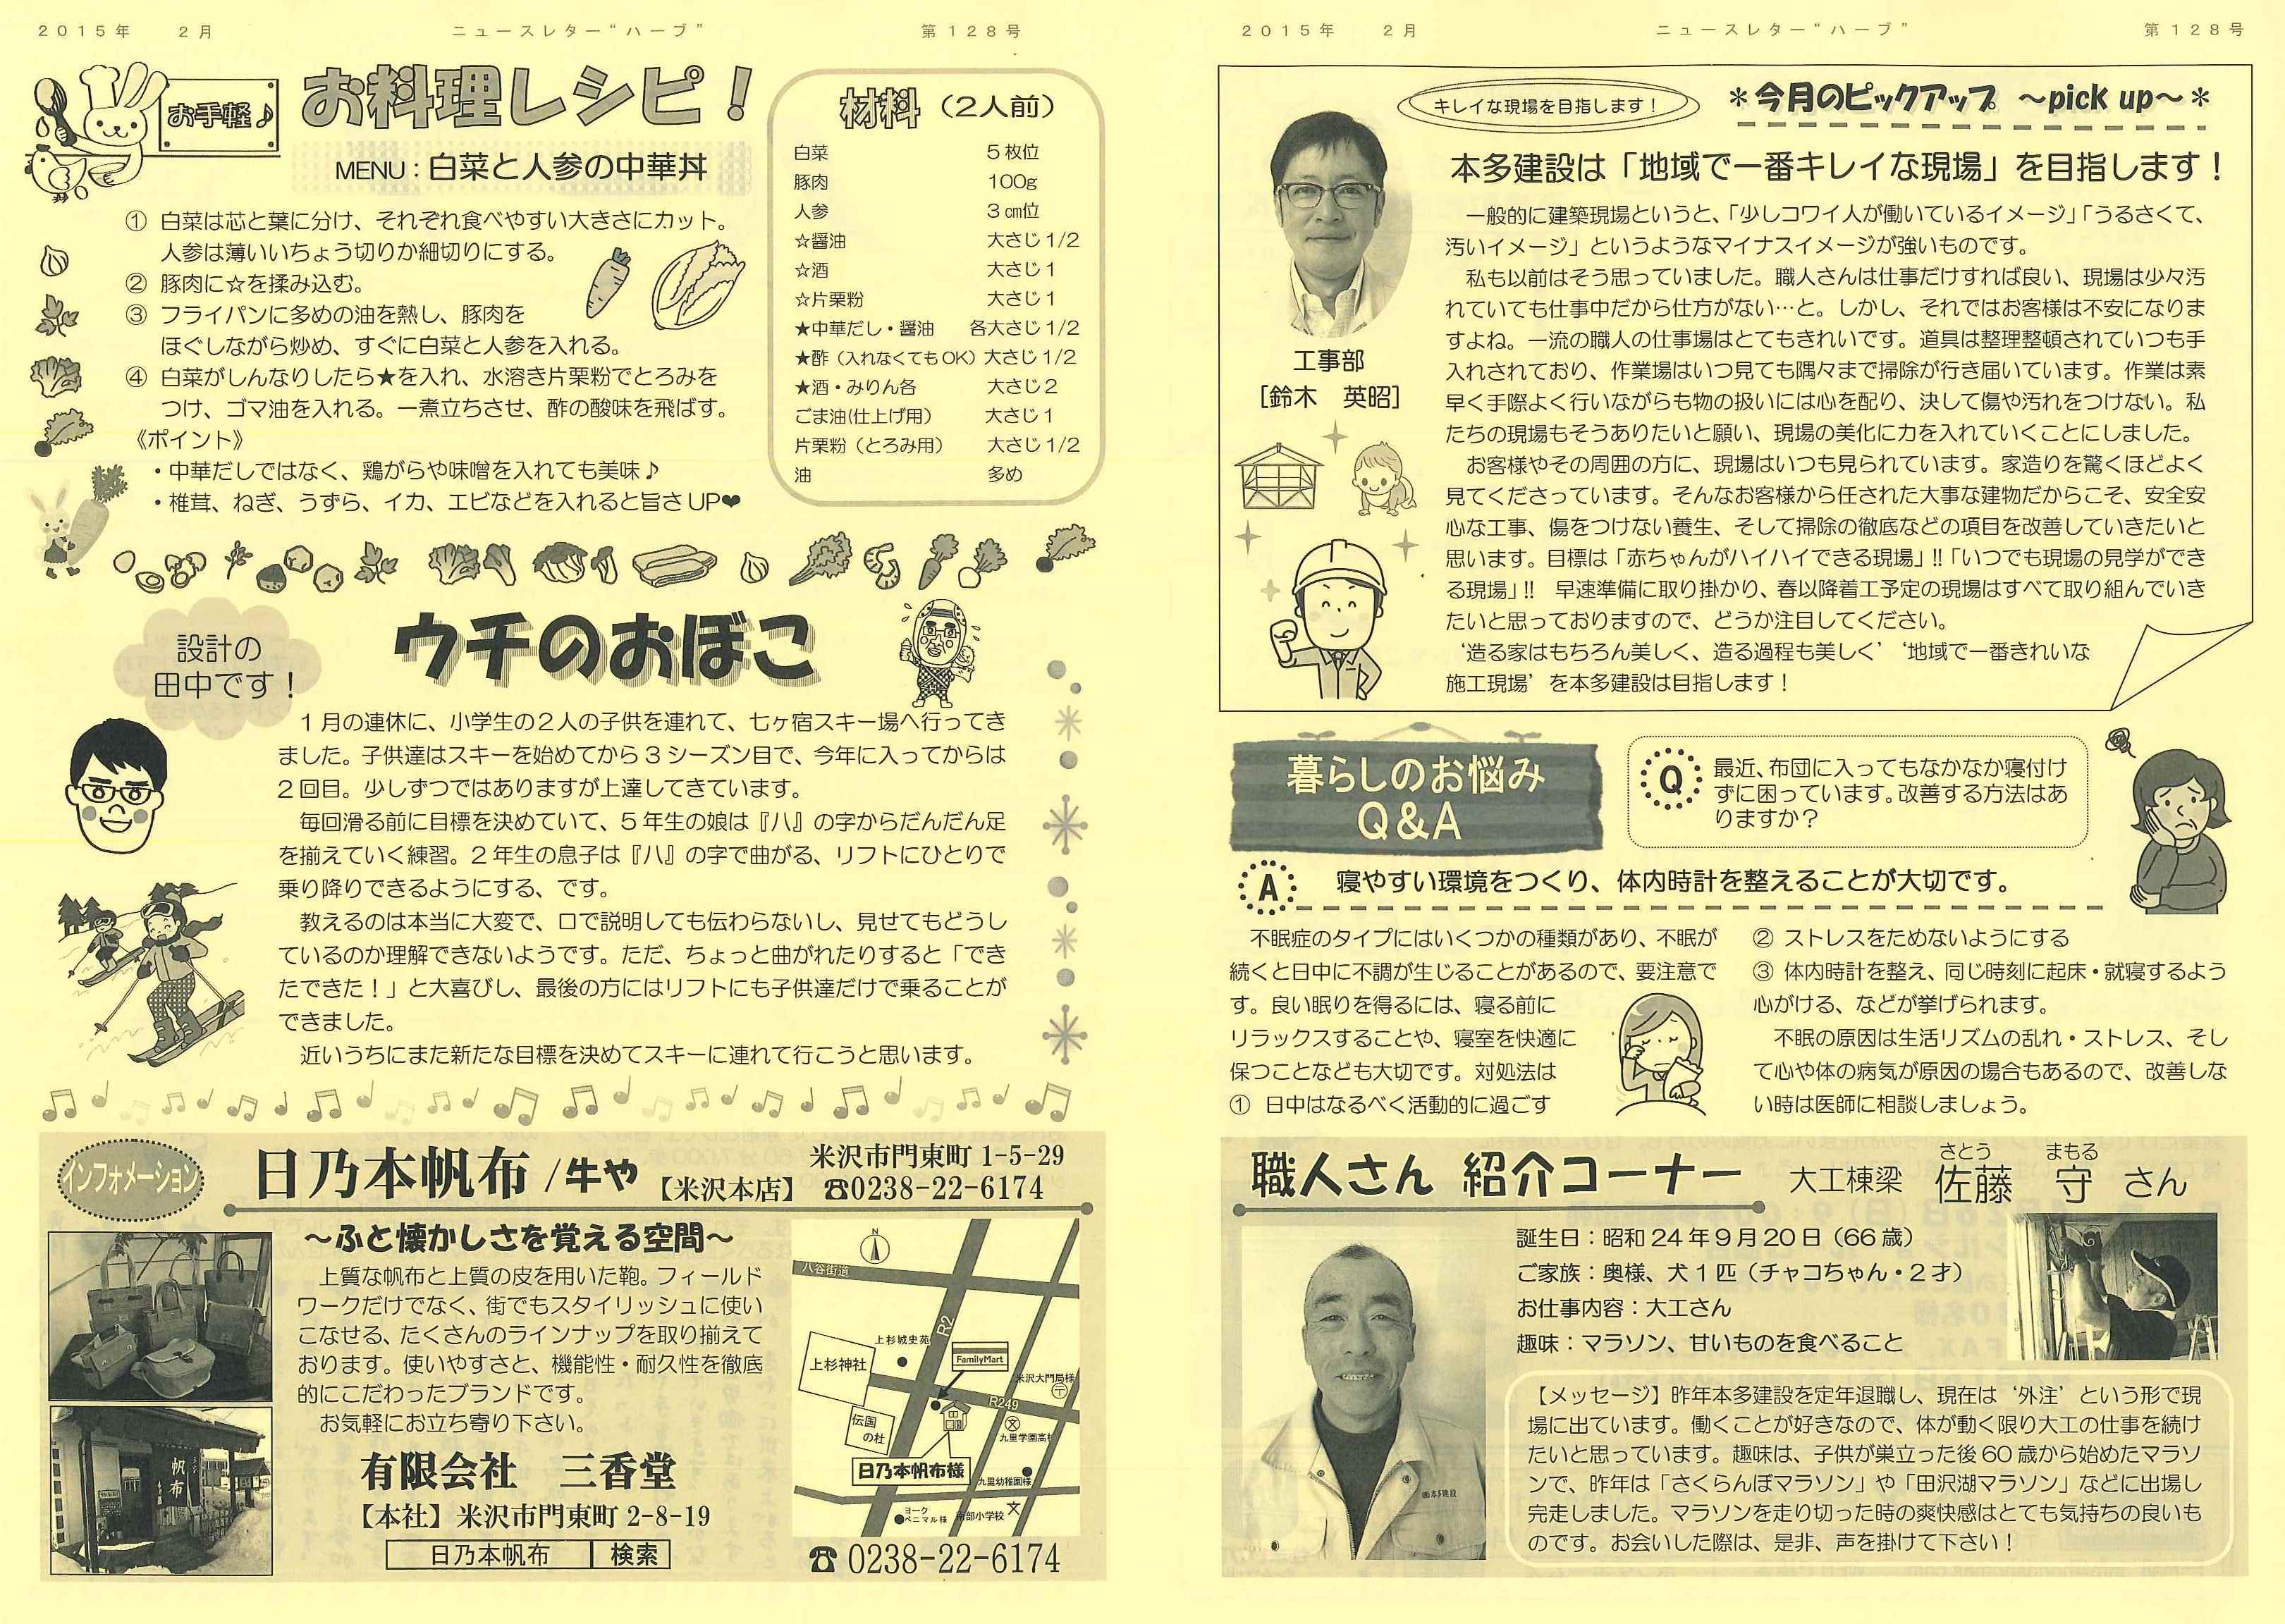 2015年　2月　ニュースレター“ハーブ”　第128号
お手軽♪
お料理レシピ！
MENU：白菜と人参の中華丼
① 白菜は芯と葉に分け、それぞれ食べやすい大きさにカット。
人参は薄いいちょう切りか細切りにする。
② 豚肉に☆を揉み込む。
③ フライパンに多めの油を熱し、豚肉を
ほぐしながら炒め、すぐに白菜と人参を入れる。
④ 白菜がしんなりしたら★を入れ、水溶き片栗粉でとろみを
つけ、ゴマ油を入れる。一煮立ちさせ、酢の酸味を飛ばす。
《ポイント》
・中華だしではなく、鶏がらや味噌を入れても美味♪
・椎茸、ねぎ、うずら、イカ、エビなどを入れると旨さUP❤
材料（2人前）
白菜　5枚位
豚肉　100g
人参　3㎝位
☆醤油　大さじ1/2
☆酒　大さじ1
☆片栗粉　大さじ1
★中華だし・醤油　各大さじ1/2
★酢（入れなくてもOK）大さじ1/2
★酒・みりん各　大さじ2
ごま油(仕上げ用)　大さじ1
片栗粉（とろみ用）　大さじ1/2
油　多め
設計の
田中です！
ウチのおぼこ
1月の連休に、小学生の2人の子供を連れて、七ヶ宿スキー場へ行ってき
ました。子供達はスキーを始めてから3シーズン目で、今年に入ってからは
2回目。少しずつではありますが上達してきています。
毎回滑る前に目標を決めていて、5年生の娘は『八』の字からだんだん足
を揃えていく練習。2年生の息子は『八』の字で曲がる、リフトにひとりで
乗り降りできるようにする、です。
教えるのは本当に大変で、口で説明しても伝わらないし、見せてもどうし
ているのか理解できないようです。ただ、ちょっと曲がれたりすると「でき
たできた！」と大喜びし、最後の方にはリフトにも子供達だけで乗ることが
できました。
近いうちにまた新たな目標を決めてスキーに連れて行こうと思います。
インフォメーション
日乃本帆布 /牛や【米沢本店】
米沢市門東町 1-5-29
☎0238-22-6174
～ふと懐かしさを覚える空間～
上質な帆布と上質の皮を用いた鞄。フィールド
ワークだけでなく、街でもスタイリッシュに使い
こなせる、たくさんのラインナップを取り揃えて
おります。使いやすさと、機能性・耐久性を徹底
的にこだわったブランドです。
お気軽にお立ち寄り下さい。
有限会社　三香堂
【本社】米沢市門東町 2-8-19
日乃本帆布　検索
帆布
N
八谷街道
R2
上杉城史苑
FamilyMart
上杉神社
米沢大門局様
R249
伝国
の杜
九里学園高校
日乃本帆布様
九里幼稚園様
ヨーク
ベニマル様
南部小学校
☎ 0238-22-6174
2015年　2月　ニュースレター“ハーブ”　第128号
キレイな現場を目指します！
＊今月のピックアップ ～pick up～＊
本多建設は「地域で一番キレイな現場」を目指します！
工事部
[鈴木　英昭]
一般的に建築現場というと、「少しコワイ人が働いているイメージ」「うるさくて、
汚いイメージ」というようなマイナスイメージが強いものです。
私も以前はそう思っていました。職人さんは仕事だけすれば良い、現場は少々汚
れていても仕事中だから仕方がない…と。しかし、それではお客様は不安になりま
すよね。一流の職人の仕事場はとてもきれいです。道具は整理整頓されていつも手
入れされており、作業場はいつ見ても隅々まで掃除が行き届いています。作業は素
早く手際よく行いながらも物の扱いには心を配り、決して傷や汚れをつけない。私
たちの現場もそうありたいと願い、現場の美化に力を入れていくことにしました。
お客様やその周囲の方に、現場はいつも見られています。家造りを驚くほどよく
見てくださっています。そんなお客様から任された大事な建物だからこそ、安全安
心な工事、傷をつけない養生、そして掃除の徹底などの項目を改善していきたいと
思います。目標は「赤ちゃんがハイハイできる現場」!!「いつでも現場の見学ができ
る現場」!!　早速準備に取り掛かり、春以降着工予定の現場はすべて取り組んでいき
たいと思っておりますので、どうか注目してください。
‘造る家はもちろん美しく、造る過程も美しく’‘地域で一番きれいな
施工現場’を本多建設は目指します！
暮らしのお悩み
Q&A
Q
最近、布団に入ってもなかなか寝付け
ずに困っています。改善する方法はあ
りますか？
A　寝やすい環境をつくり、体内時計を整えることが大切です。
不眠症のタイプにはいくつかの種類があり、不眠が
続くと日中に不調が生じることがあるので、要注意で
す。良い眠りを得るには、寝る前に
リラックスすることや、寝室を快適に
保つことなども大切です。対処法は
① 日中はなるべく活動的に過ごす
② ストレスをためないようにする
③ 体内時計を整え、同じ時刻に起床・就寝するよう
心がける、などが挙げられます。
不眠の原因は生活リズムの乱れ・ストレス、そし
て心や体の病気が原因の場合もあるので、改善しな
い時は医師に相談しましょう。
職人さん 紹介コーナー
さとう　まもる
大工棟梁　佐藤　守　さん
誕生日：昭和24年9月20日（66歳）
ご家族：奥様、犬1匹（チャコちゃん・2才）
お仕事内容：大工さん
趣味：マラソン、甘いものを食べること
㈱本多建設
【メッセージ】昨年本多建設を定年退職し、現在は‘外注’という形で現
場に出ています。働くことが好きなので、体が動く限り大工の仕事を続け
たいと思っています。趣味は、子供が巣立った後60歳から始めたマラソ
ンで、昨年は「さくらんぼマラソン」や「田沢湖マラソン」などに出場し
完走しました。マラソンを走り切った時の爽快感はとても気持ちの良いも
のです。お会いした際は、是非、声を掛けて下さい！